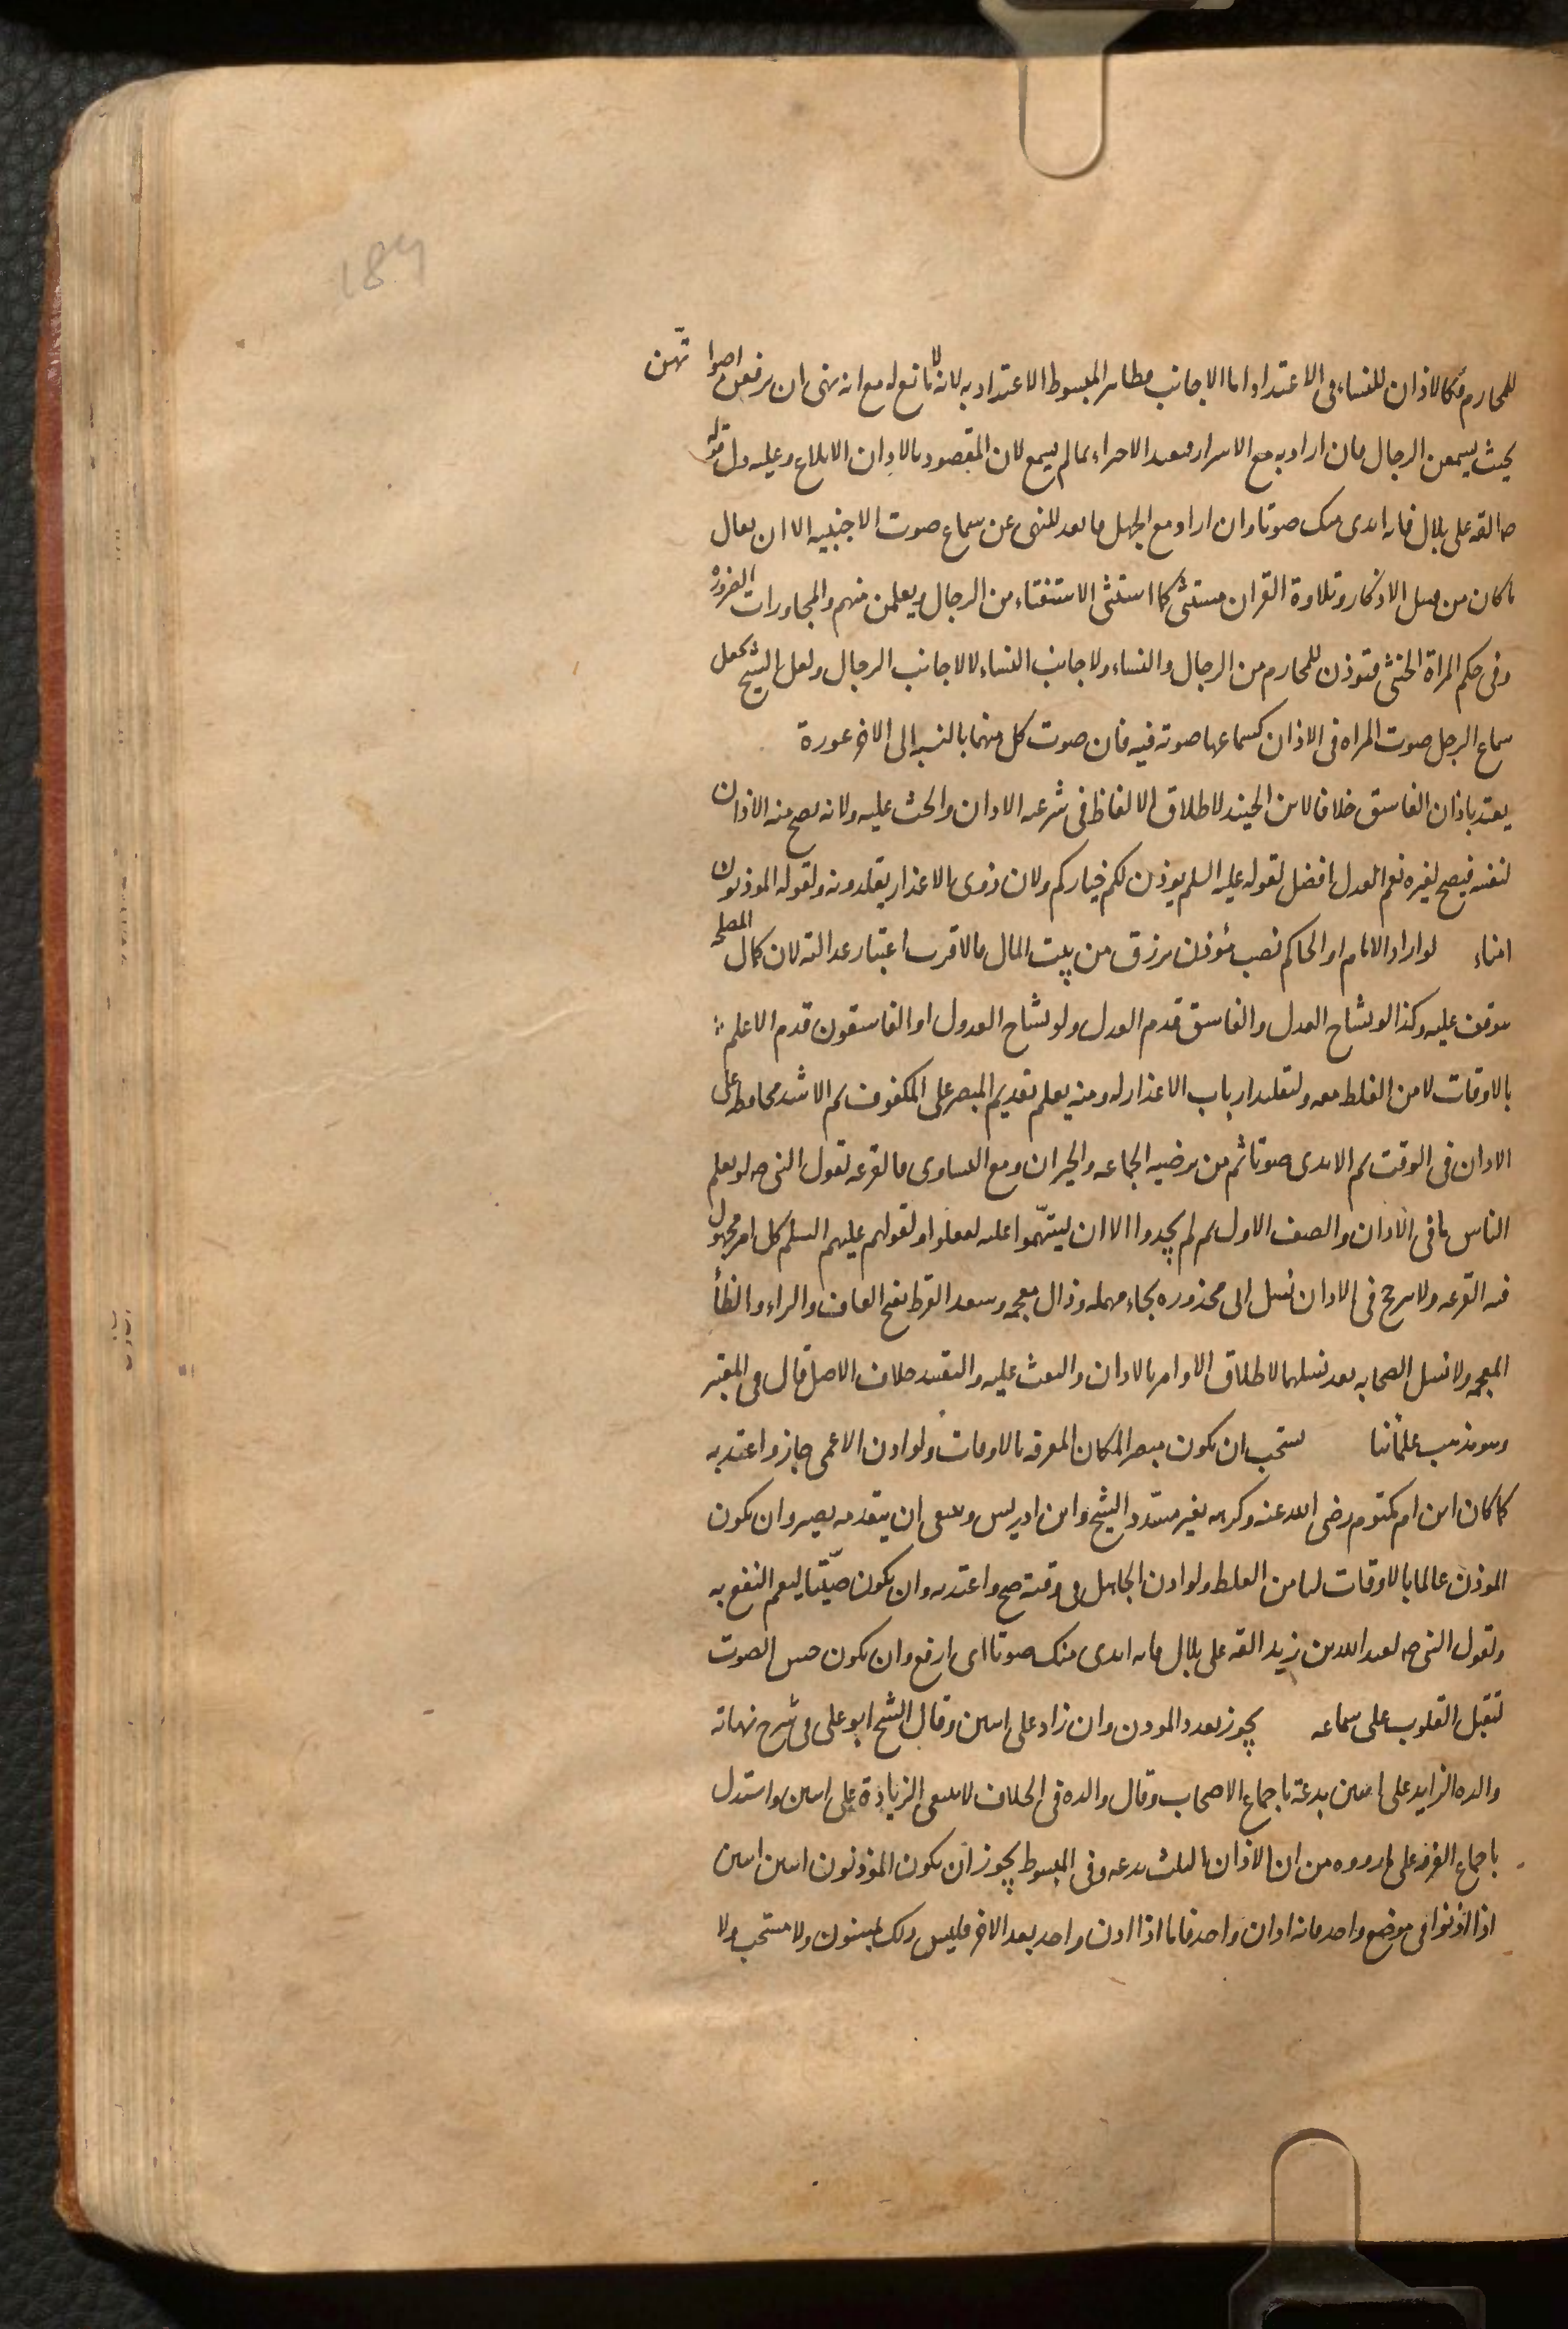 189
للمحارم فكالاذان للنساء فى الاعتداد اما الاجانب فظاهر المبسوط الاعتداد به لانه لا مانع له مع انه نهى ان يرفعن اصواتهن
بحيث يسمعن الرجال فان اراد به مع الاسرار فبعيد الاجزاء بما لم يسمع لان المقصود بالاذان الابلاغ وعليه دل قوله
ص القه على بلال فانه اندى منك صوتا وان اراد مع الجهل فابعد للنهى عن سماع صوت الاجنبيه الا ان يقال
ما كان من قبيل الاذكار وتلاوة القران مستثنى كما استثنى الاستفتاء من الرجال وتعلمن منهم والمحاورات الضرورة
وفى حكم المراة الخنثى فتوذن للمحارم من الرجال والنساء ولاجانب النساء لا لاجانب الرجال ولعل الشيخ يجعل
سماع الرجل صوت المراه فى الاذان كسماعها صوته فيه فان صوت كل منهما بالنسبه الى الاخر عورة
يعتد باذان الفاسق خلافا لابن الجنيد لاطلاق الالفاظ فى شرعيه الاذان والحث عليه ولانه يصح منه الاذان
لنفسه فيصح لغيره نعم العدل افضل لقوله عليه السلم يوذن لكم خياركم ولان ذوى الاعذار يقلدونه ولقوله الموذنون
امناء لو اراد الامام او الحاكم نصب مؤذن يرزق من بيت المال فالاقرب اعتبار عدالته لان كمال المصلحه
يتوقف عليه وكذا لو تشاح العدل والفاسق قدم العدل ولو تشاح العدول او الفاسقون قدم الاعلم
بالاوقات لامن الغلط معه ولتقليد ارباب الاعذار له ومنه يعلم تقديم المبصر على المكفوف ثم الاشد محافظه على
الاذان فى الوقت ثم الاندى صوتا ثم من يرضيه الجماعه والجيران ومع التساوى فالقرعه لقول النبى ص لو يعلم
الناس ما فى الاذان والصف الاول ثم لم يجدوا الا ان يستهّموا عليه لفعلوا ولقولهم عليهم السلم كل امر مجهول
فيه القرعه ولا يرجح فى الاذان نسل ابى محذوره بحاء مهمله وذال معجمه وسعد القرظ بفتح القاف والراء والظأ
المعجمه ولا نسل الصحابه بعد نسلهما لاطلاق الاوامر بالاذان والبعث عليه والتقييد خلاف الاصل قال فى المعتبر
وهو مذهب علمائنا يستحب ان يكون مبصرا لمكان المعرفه بالاوقات ولو اذن الاعمى جاز واعتد به
كما كان ابن ام مكتوم رضى الله عنه وكره بغير مسدد الشيخ وابن ادريس وينبغى ان يتقدمه بصير وان يكون
الموذن عالما بالاوقات ليامن الغلط ولو اذن الجاهل فى وقته صح واعتد به وان يكون صيّتا ليعم النفع به
ولقول النبى ص لعبد الله بن زيد القه على بلال فانه اندى منك صوتا اى ارفع وان يكون حسن الصوت
لتقبل القلوب على سماعه يجوز تعدد الموذن وان زاد على اثنين وقال الشيخ ابو على فى شرح نهاية
والده الزايد على اثنين بدعة باجماع الاصحاب وقال والده فى الخلاف لا ينبغى الزيادة على اثنين واستدل
باجماع الفرقه على ما رووه من ان الاذان الثالث بدعه وفى المبسوط يجوز ان يكون المؤذنون اثنين اثنين
اذا اذنوا فى موضع واحد فانه اذان واحد فاما اذا اذن واحد بعد الاخر فليس ذلك بمسنون ولا مستحب ولا